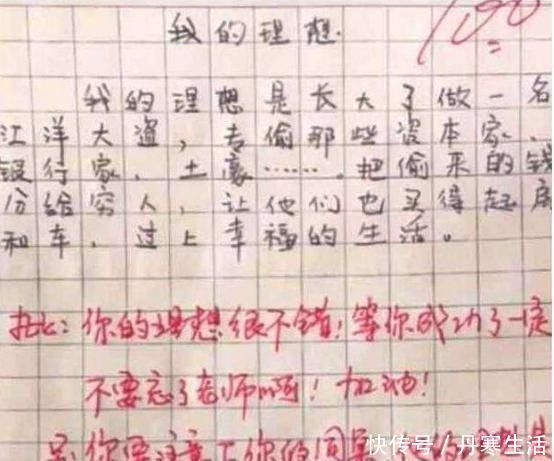 我的理想.
100
我的理想是长大了做一名
江洋大盗，专偷那些资本家、
银行家、土豪……。把偷来的钱
分给穷人，让他们也买得起房
和车，过上幸福的生活。
批：你的理想很不错！等你成功了一定
不要忘了老师啊！加油！
你要注意下你的同桌
快传号／丹寒生活